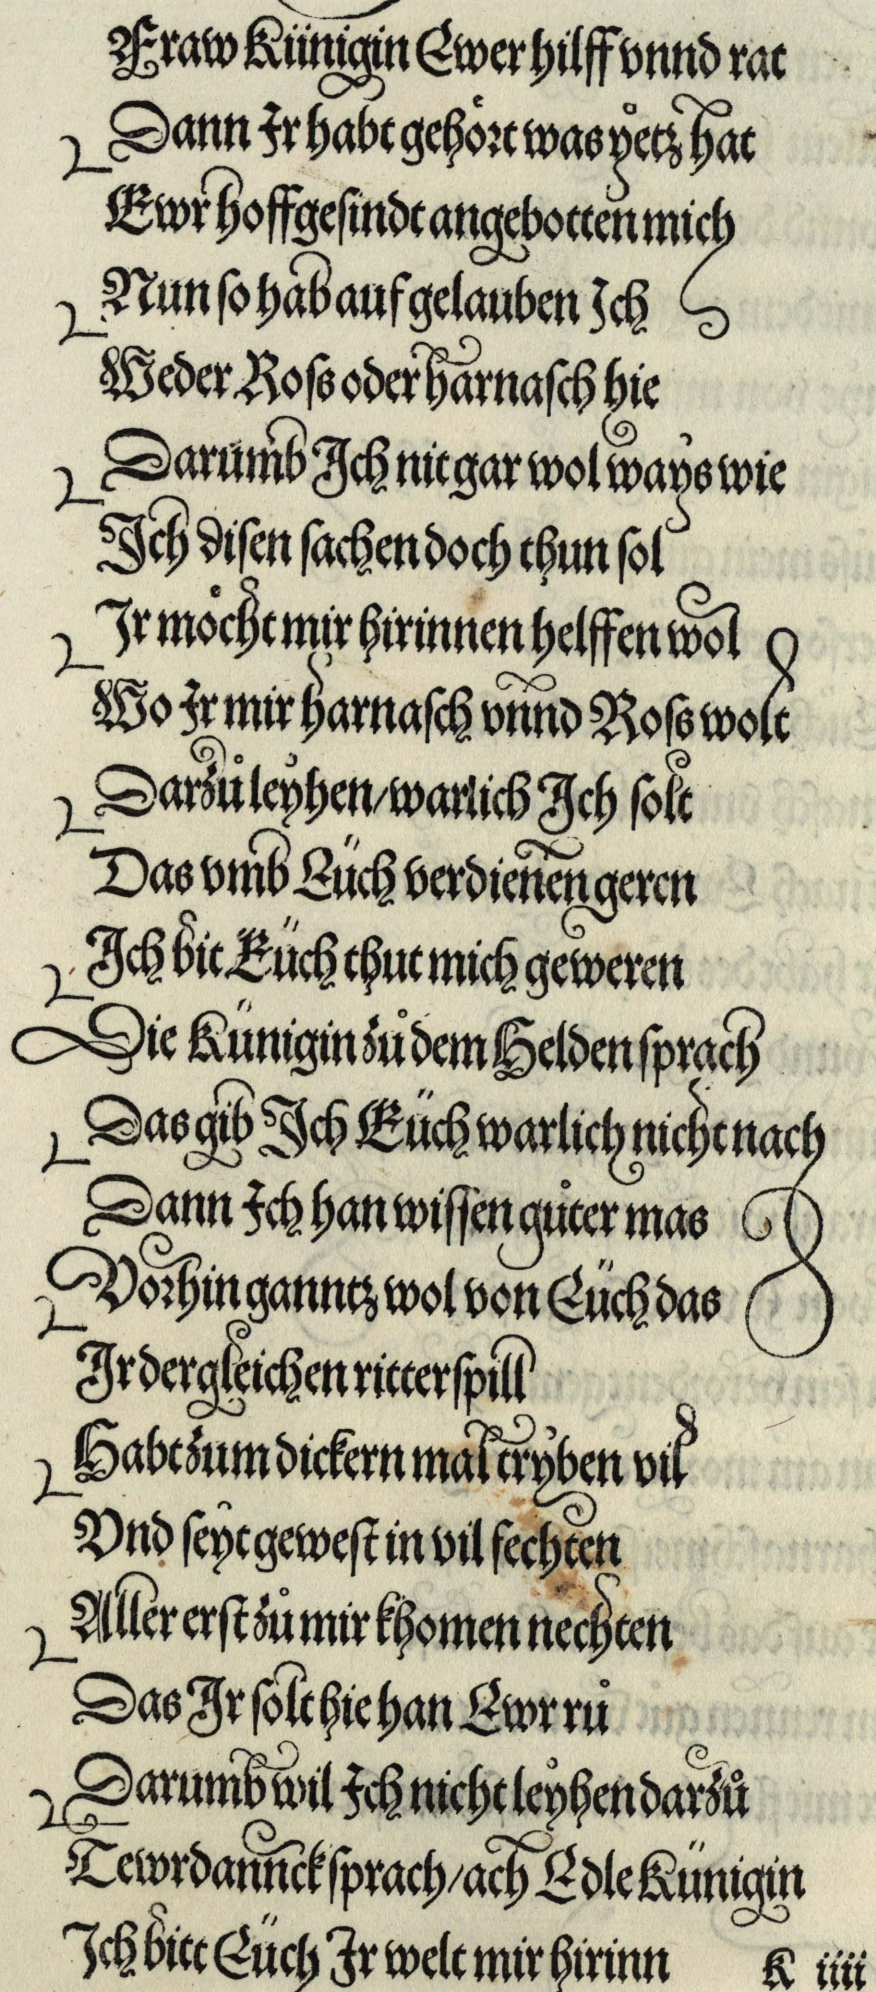 Fraw Künigin Ewer hilff vnnd rat
Dann Ir habt gehört was yetz hat
Ewr hoffgesindt angebotten mich
Nun so hab auf gelauben Ich
Weder Ross oder harnasch hie
Darumb Ich nit gar wol ways wie
Ich disen sachen doch thun sol
Ir möcht mir hirinnen helffen wol
Wo Ir mir harnasch vnnd Ross wolt
Darzů leyhen/warlich Ich solt
Das vmb Eüch verdienen geren
Ich bit Eüch thut mich geweren
Die Künigin zů dem Helden sprach
Das gib Ich Eüch warlich nicht nach
Dann Ich han wissen gůter mas
Vorhin ganntz wol von Eüch das
Ir dergleichen ritterspill
Habt zum dickern mal tryben vil
Vnd seyt gewest in vil fechten
Aller erst zů mir khomen nechten
Das Ir solt hie han Ewr rů
Darumb wil Ich nicht leyhen darzů
Tewrdannck sprach/ach Edle Künigin
Ich bitt Eüch Ir welt mir hirinn
K iiii